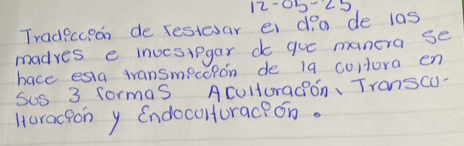 12-05-25
Tradicción de festejar el día de las
madres e investigar de que manera se
hace esta transmicción de la cultura en
sus 3 formas Aculturación, Transcu-
lturación y Endoculturación.